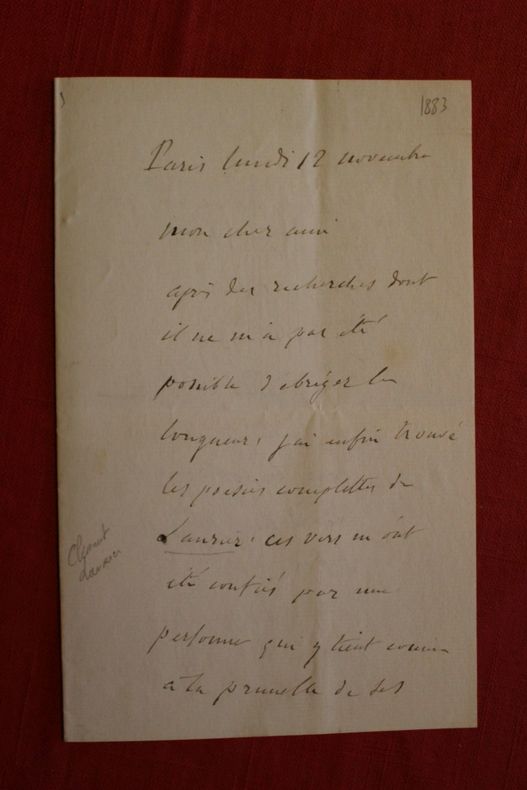 1883
Paris lundi 12 novembre
mon cher ami
après des recherches dont
il ne m'a pas été
possible d'abréger la
longueur, j'ai enfin trouvé
les poésies complettes de
Laurier. ces vers m'ont
été confiés par une
personne qui y tient comme
à la prunelle de ses
Clément
Laurier